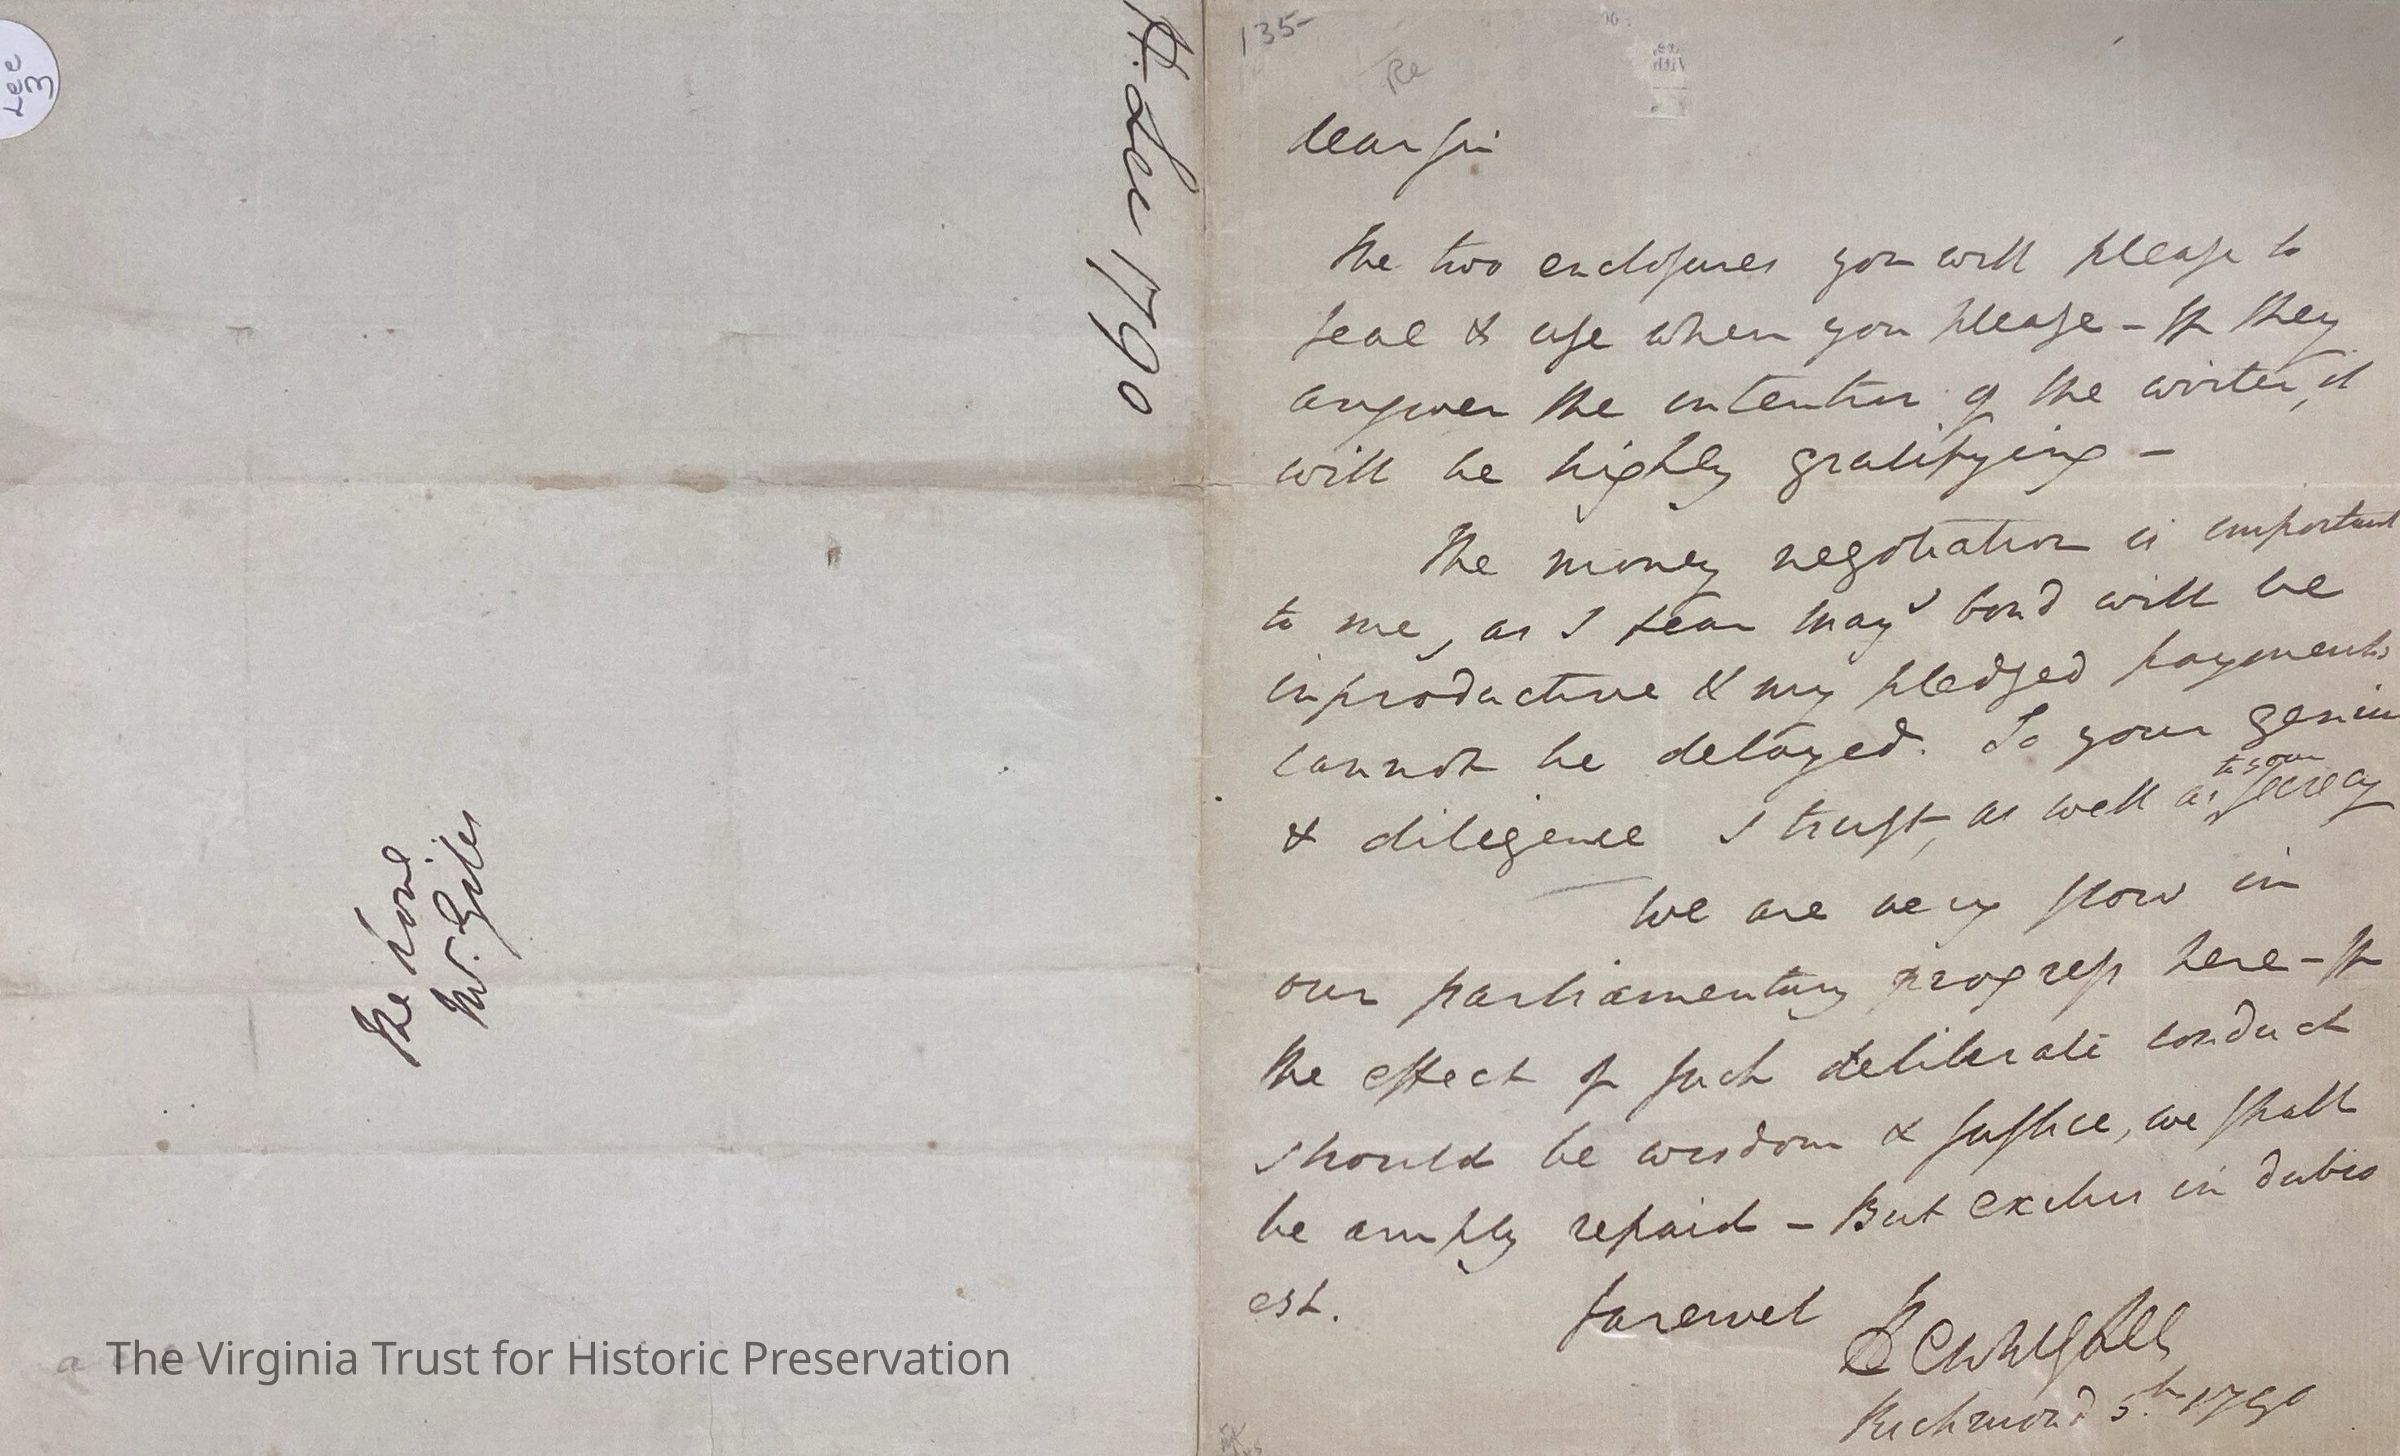 Lee
3
H. Lee 1790
The hone
Mr. Giles
The Virginia Trust for Historic Preservation
135-
Re
dear sir
The two enclosures you will please to
seal & use when you please - If they
answer the intention of the writer, it
will be highly gratifying -
The money negotiation is important
to me, as I fear Mays bond will be
inproductive & my pledged payments
cannot be delayed. To your genius
& diligence I trust, as well as to your secrecy
We are very slow in
our parliamentary progress here - If
the effect of such deliberate conduct
should be wisdom & justice, we shall
be amply repaid - But exitus in dubio
est.
farewel
Henry Lee
Richmond 5th 1790